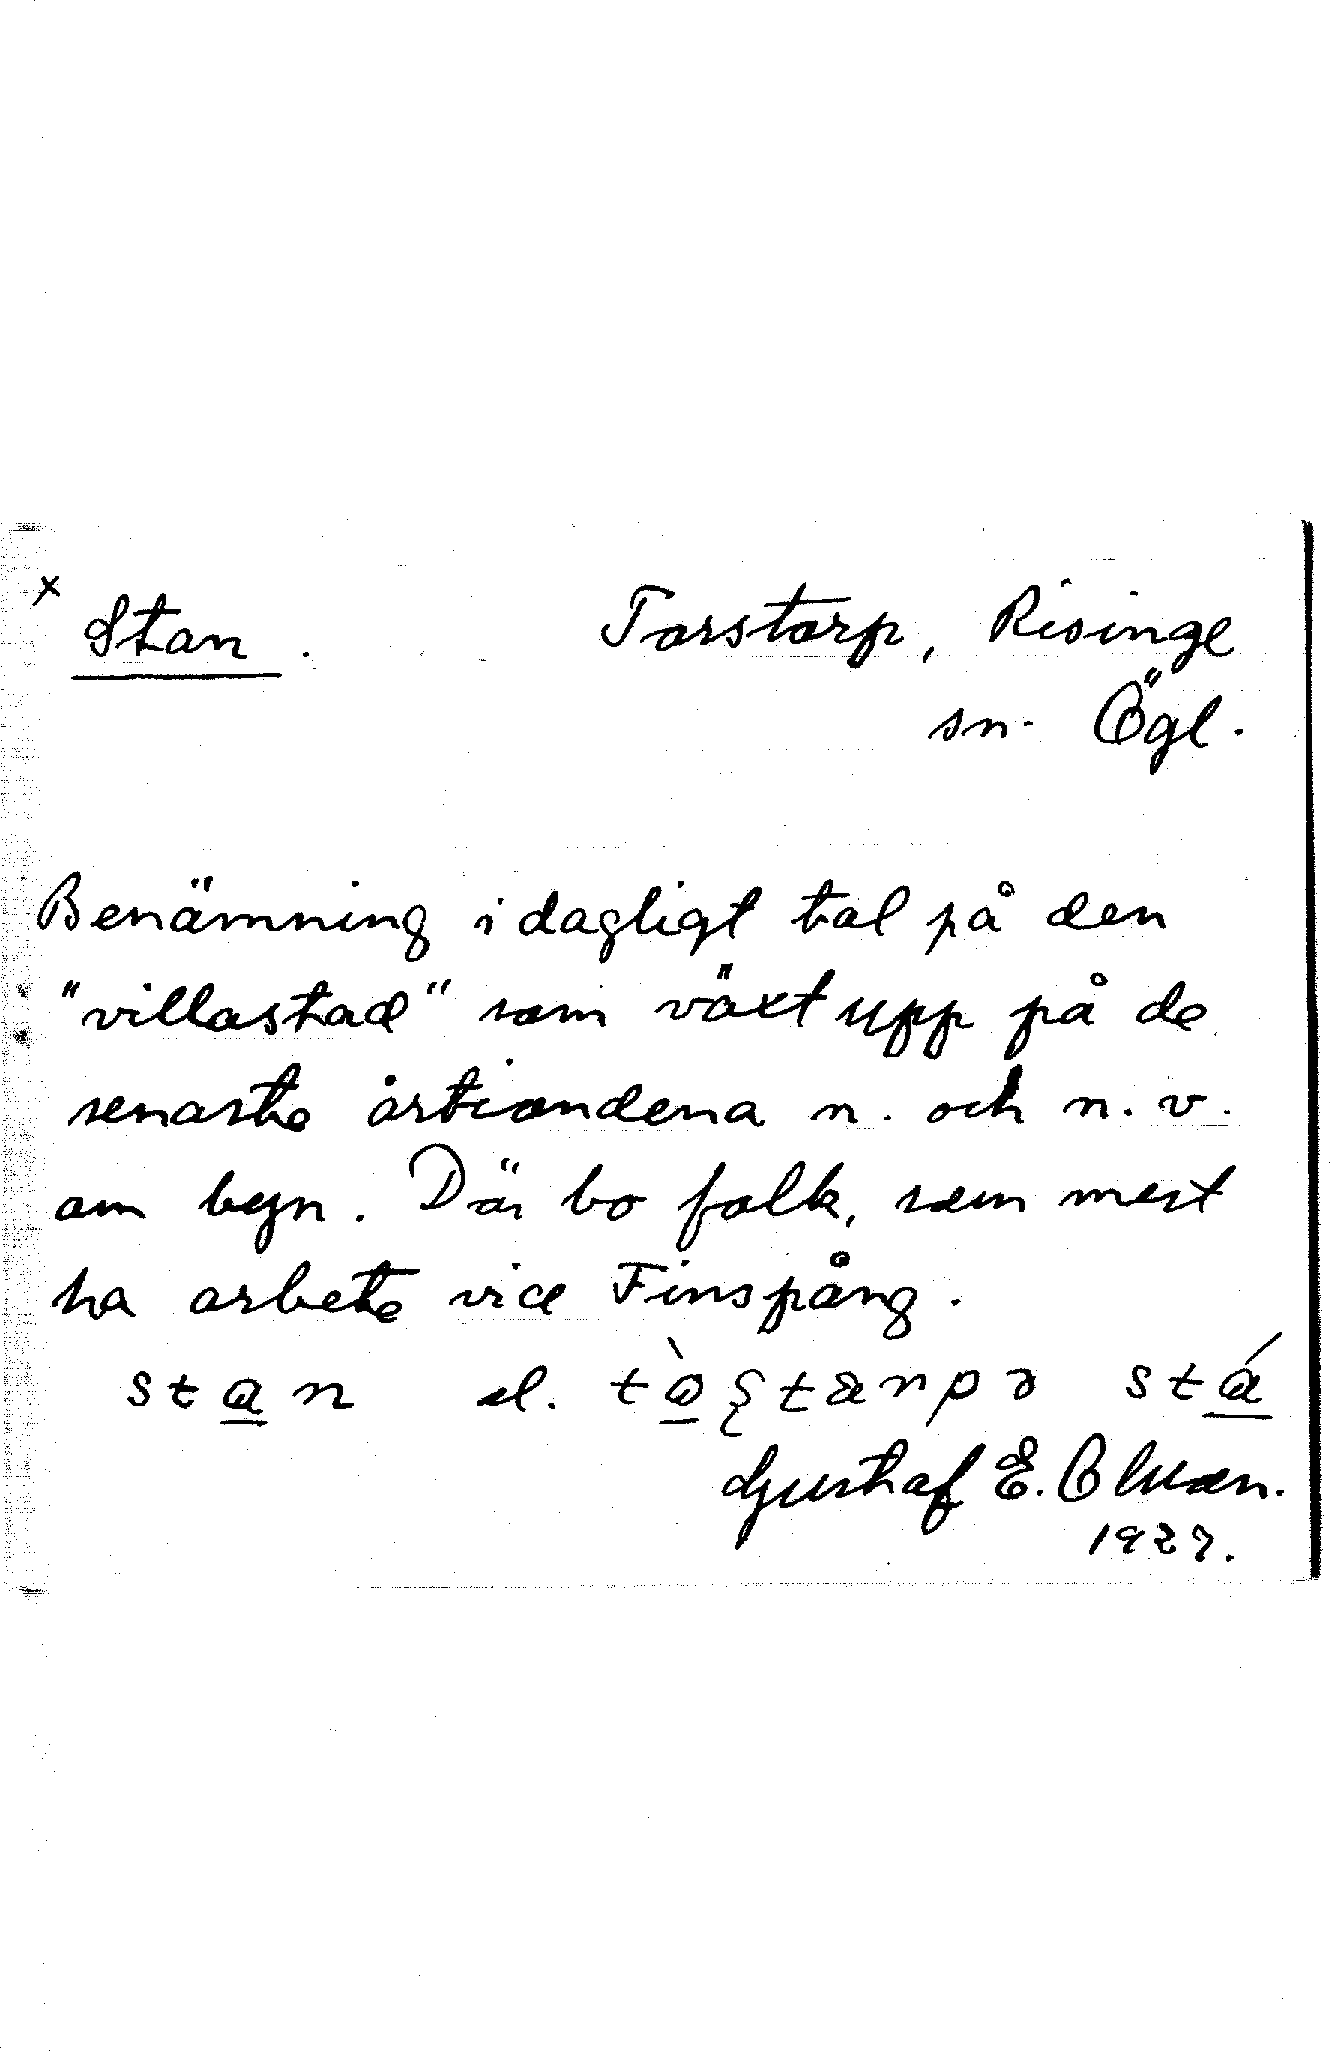 x Stan. Torstorp, Risinge
sn. Ögl.
Benämning i dagligt tal på den
"villastad" som växt upp på de
senaste årtiondena n. och n. v.
om byn. Där bo folk, som mest
ha arbete vid Finspång.
stan el. stá
Gustaf E.
1927.